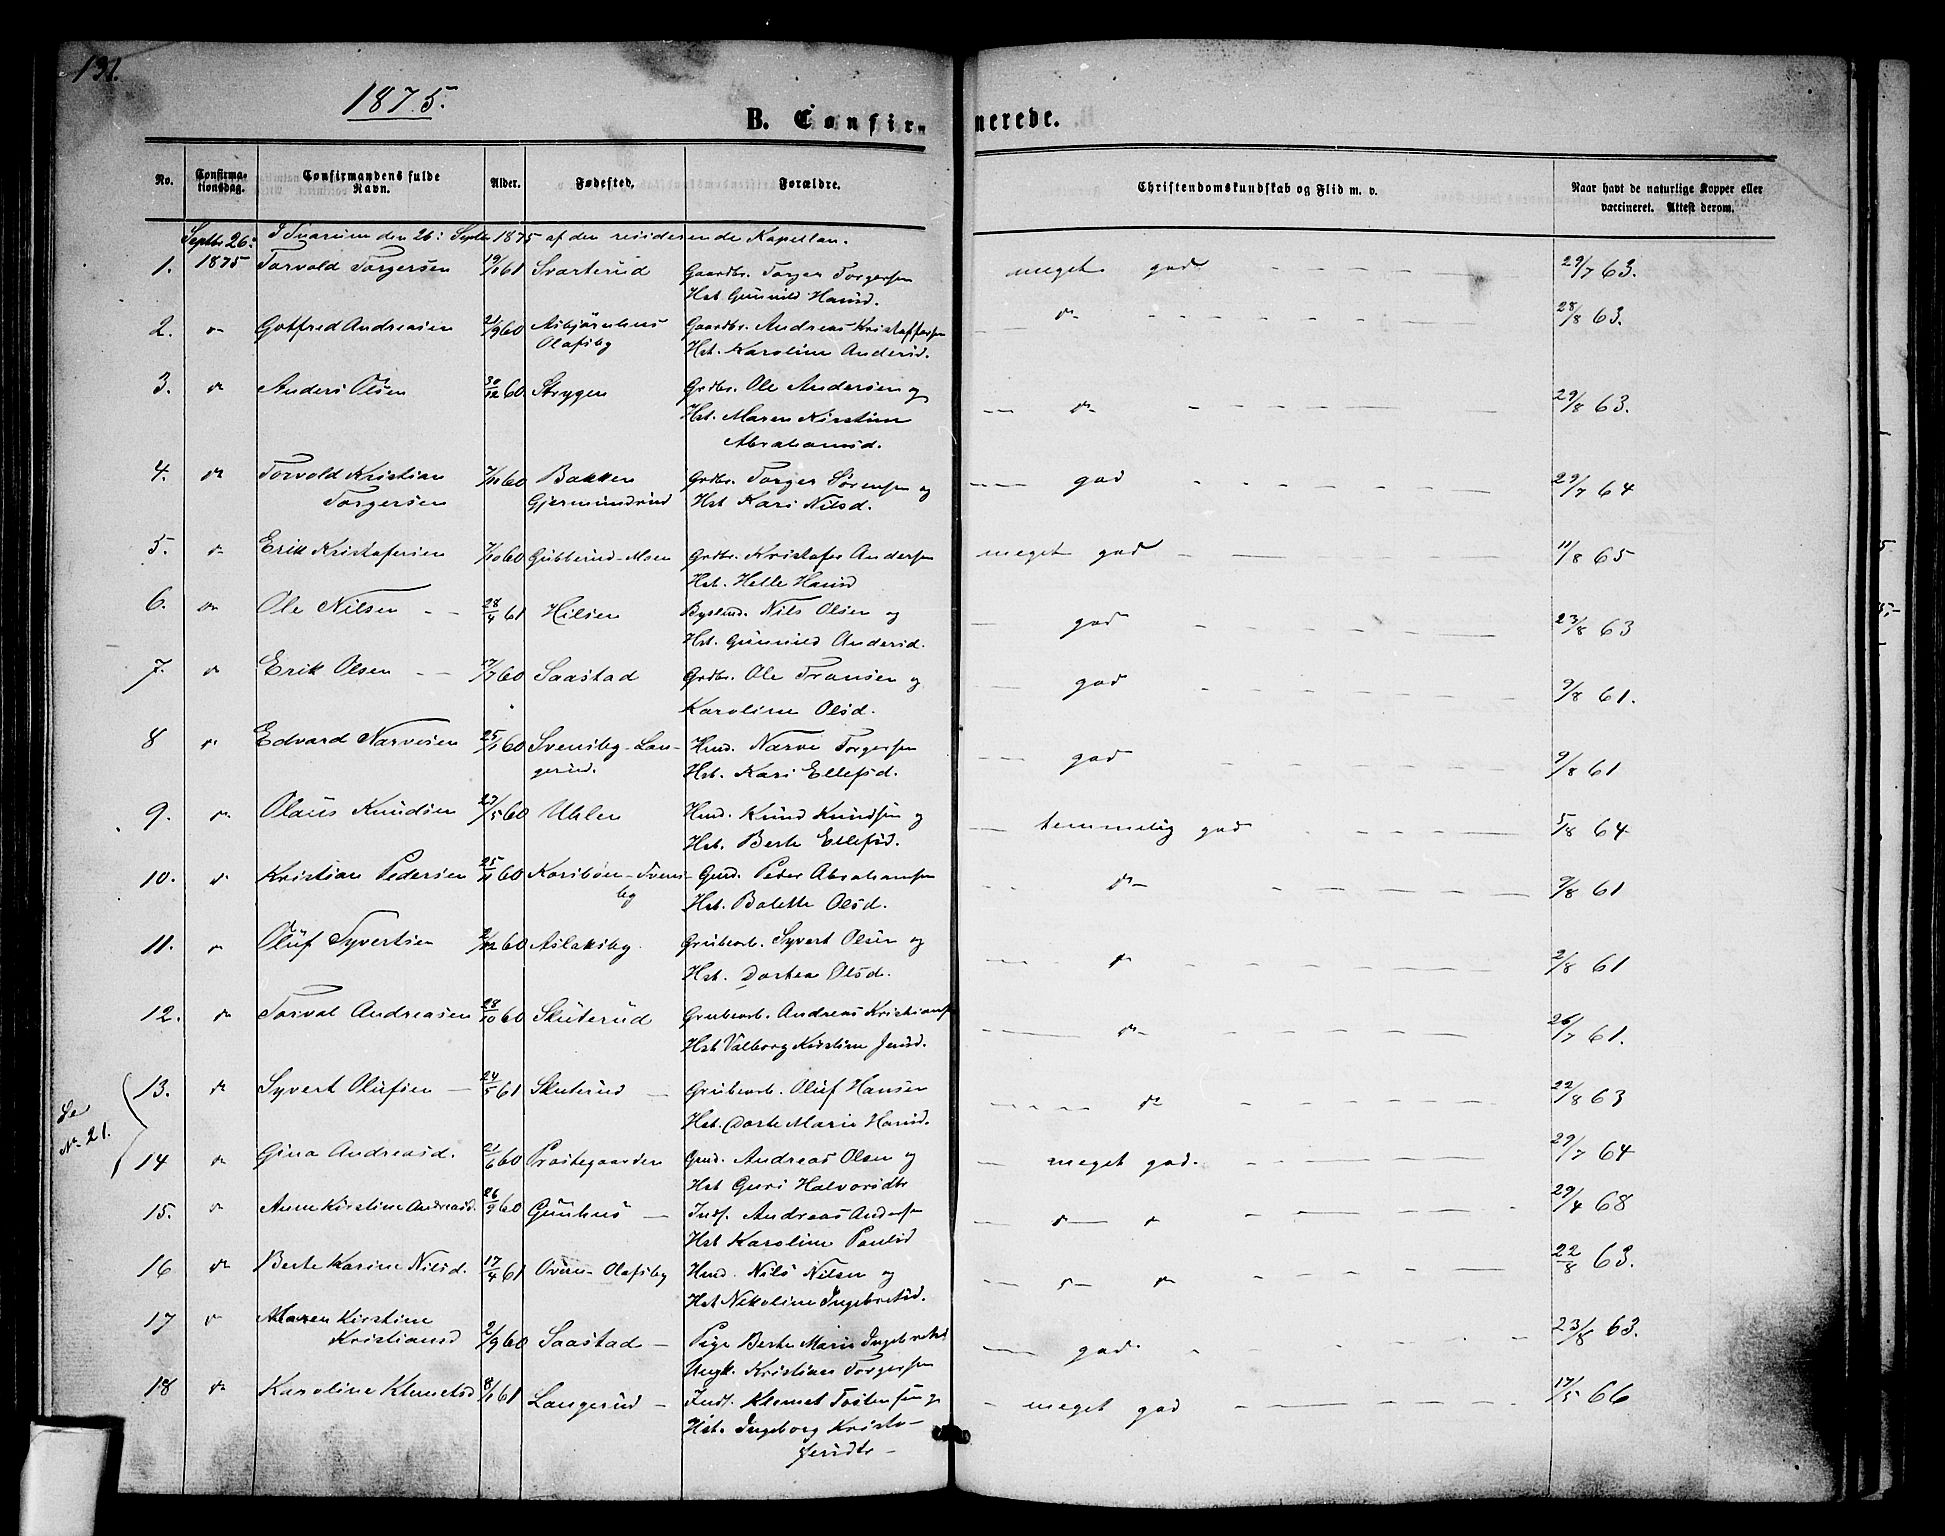 131.
1875.
B. Confirmerede.
No. Confirmationsdag. Confirmandens fulde Navn. Alder. Fødested. Forældre. Christendomskundskab og Flid m. v. Naar havt de naturlige Kopper eller vaccineret. Attest derom.
Septbr 26: I Snarum den 26: Septbr 1875 af den residerende Kapellan.
1. 1875 Torvald Torgersen 19/1 61 Svarterud Gaardbr. Torger Torgersen meget god 29/7 63.
Hst. Gunnild Hansd.
2. do Gotfred Andreasen 21/9 60 Asbjörnhus Gaardbr. Andreas Kristoffersen — do 28/8 63.
Olafsby Hst. Karoline Andersd.
3. do Anders Olsen 30/12 60 Strygen Grdbr. Ole Andersen og — do 29/8 63.
Hst. Maren Kirstine
Abrahamsd.
4. do Torvald Kristian 7/11 60 Bakken Grdbr. Torger Sörensen og — god 29/7 64
Torgersen Gjermundrud Hst Kari Nilsd.
5. do Erik Kristofersen 7/10 60 Gubberud-Moen Grdbr. Kristofer Andersen meget god 11/8 65
Hst. Helle Hansd
6. do Ole Nilsen 28/4 61 Hilsen Nils Olsen og — god 23/8 63
Hst. Gunnild Andersd.
7. do Erik Olsen 17/7 60 Saastad Grdbr. Ole Fransen og — god 9/8 61.
Karoline Olsd.
8 do Edvard Narvesen 25/1 60 Svensby-Lan- Hmd. Narve Torgersen — god 9/8 61
gerud. Hst. Kari Ellefsd.
9. do Olaus Knudsen 23/5 60 Uhlen Hmd. Knud Knudsen og — temmelig god 5/8 64
Hst. Berte Ellefsd.
10. do Kristian Pedersen 25/11 60 Korsböen-Svens- Gmd. Peder Abrahamsen — do 9/8 61
by Hst. Bolette Olsd.
11. do Oluf Syvertsen 21/12 60 Aslaksby. Grubearb. Syvert Olsen og — do 2/8 61
Hst. Dortea Olsd.
12. do Torval Andreasen 28/10 60 Skuterud Grubearb. Andreas Kristians — do 26/7 61.
Hst Valborg Kirstine Jensd.
13. do Syvert Olufsen — 24/5 61 Skuterud — Grubearb. Oluf Hansen — do 22/8 63
Se
Nr 21.
Hst. Dorte Marie Hansd.
14 do Gina Andreasd. 21/6 60 Præstegaarden Gmd. Andreas Olsen og — meget god. 29/7 64
Hst Guri Halvorsdtr
15. do Anne Kirstine Andreasd. 26/9 60 Gunhus — Inds. Andreas Anders — do do 29/4 68
Hst Karoline Paulsd
16 do Berte Karine Nilsd. 17/4 61 Oven-Olafsby Hmd. Nils Nilsen og — do do 22/8 63.
Hst Nikoline Ingebretsd.
17 do Maren Kirstine
Kristiansd 2/9 60 Saastad — Pige Berte Marie Ingebretsd — god 23/8 63.
Ungk. Kristian Torgersen
18 do Karoline Klemetsd 8/1 61 Langerud — Inds. Klemet Tostensen og — meget god 17/5 66
Hst. Ingeborg Kristo-
fersdtr —